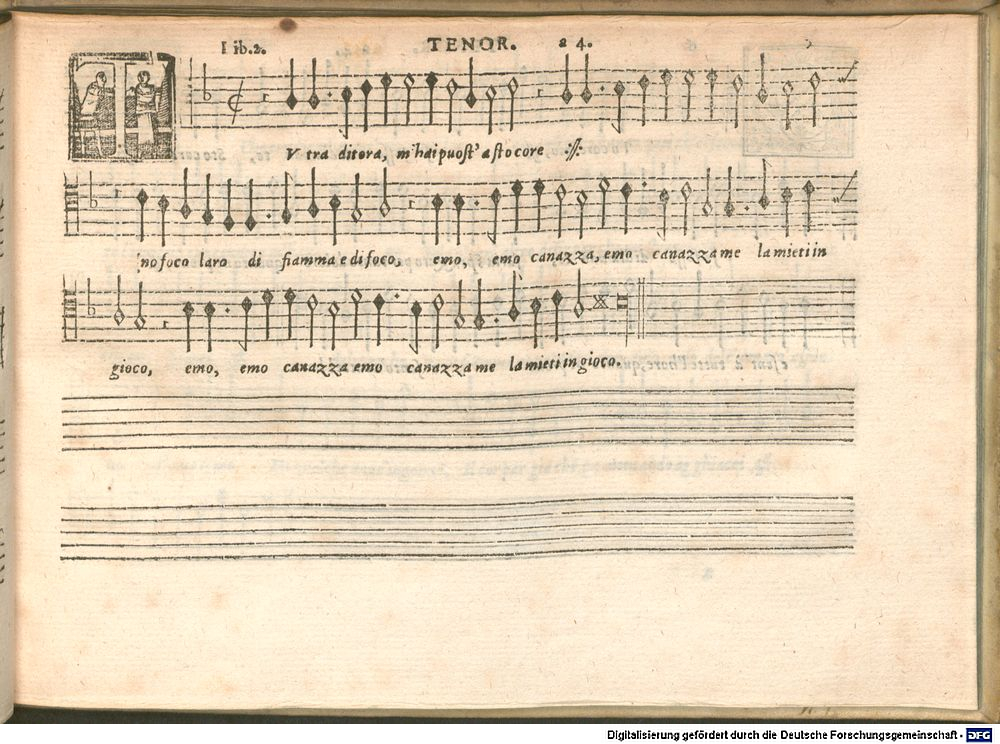 Lib.2. TENOR. a 4.
TV tra ditora, m'hai puost' a sto core :||:
'no foco laro di fiamma e di foco, emo, emo canazza, emo canazza me la mieti in
gioco, emo, emo canazza emo canazza me la mieti in gioco.
Digitalisierung gefördert durch die Deutsche Forschungsgemeinschaft - DFG